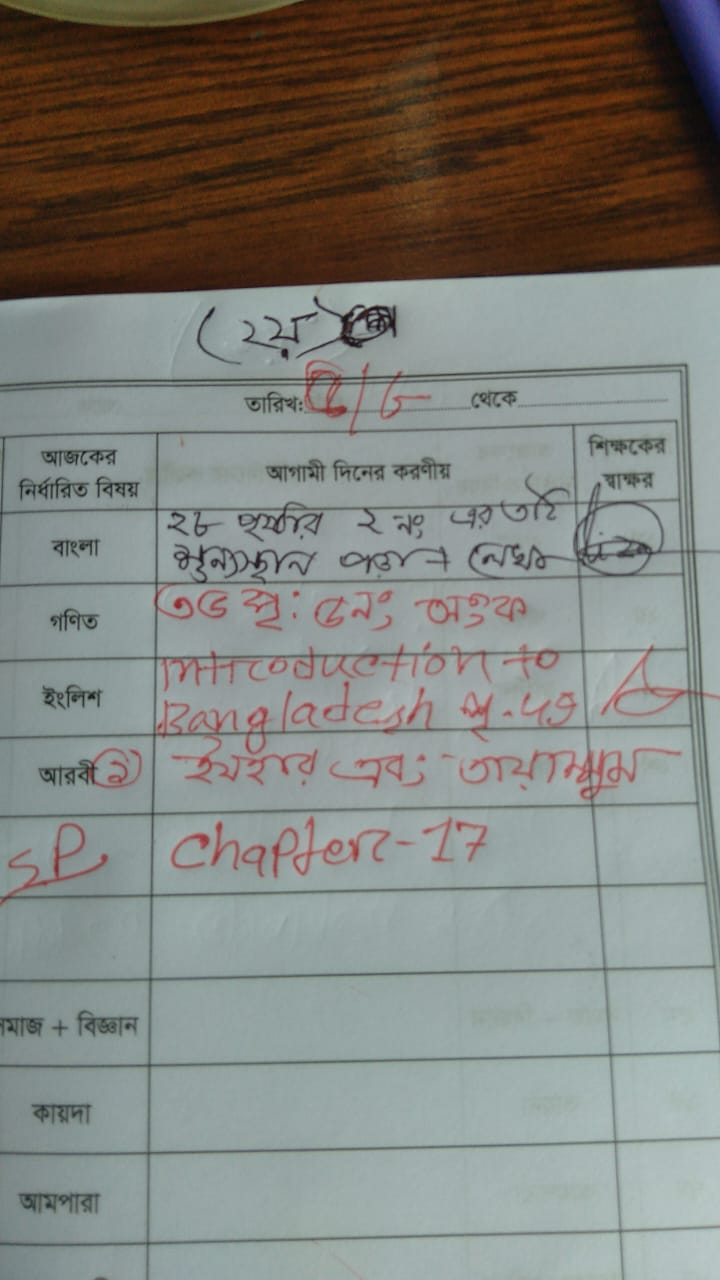 (২য়)
তারিখঃ /৮ থেকে
আজকের নির্ধারিত বিষয় আগামী দিনের করণীয় শিক্ষকের স্বাক্ষর
বাংলা ২৮ পৃষ্ঠার ২ নং এর ৩টি
শুন্যস্থান পড়া + লেখা
গণিত ৩৬ পৃ: ৫নং অংক
ইংলিশ Introduction to
Bangladesh পৃ-
আরবী ২ ইযহার এবং তায়াম্মুম
SP Chapter-17
সমাজ + বিজ্ঞান
কায়দা
আমপারা